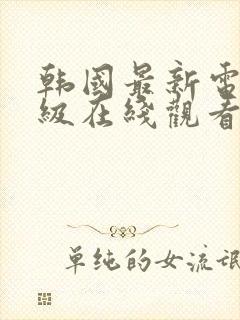 韩國最新電
級在綫觀看
單純的女流氓